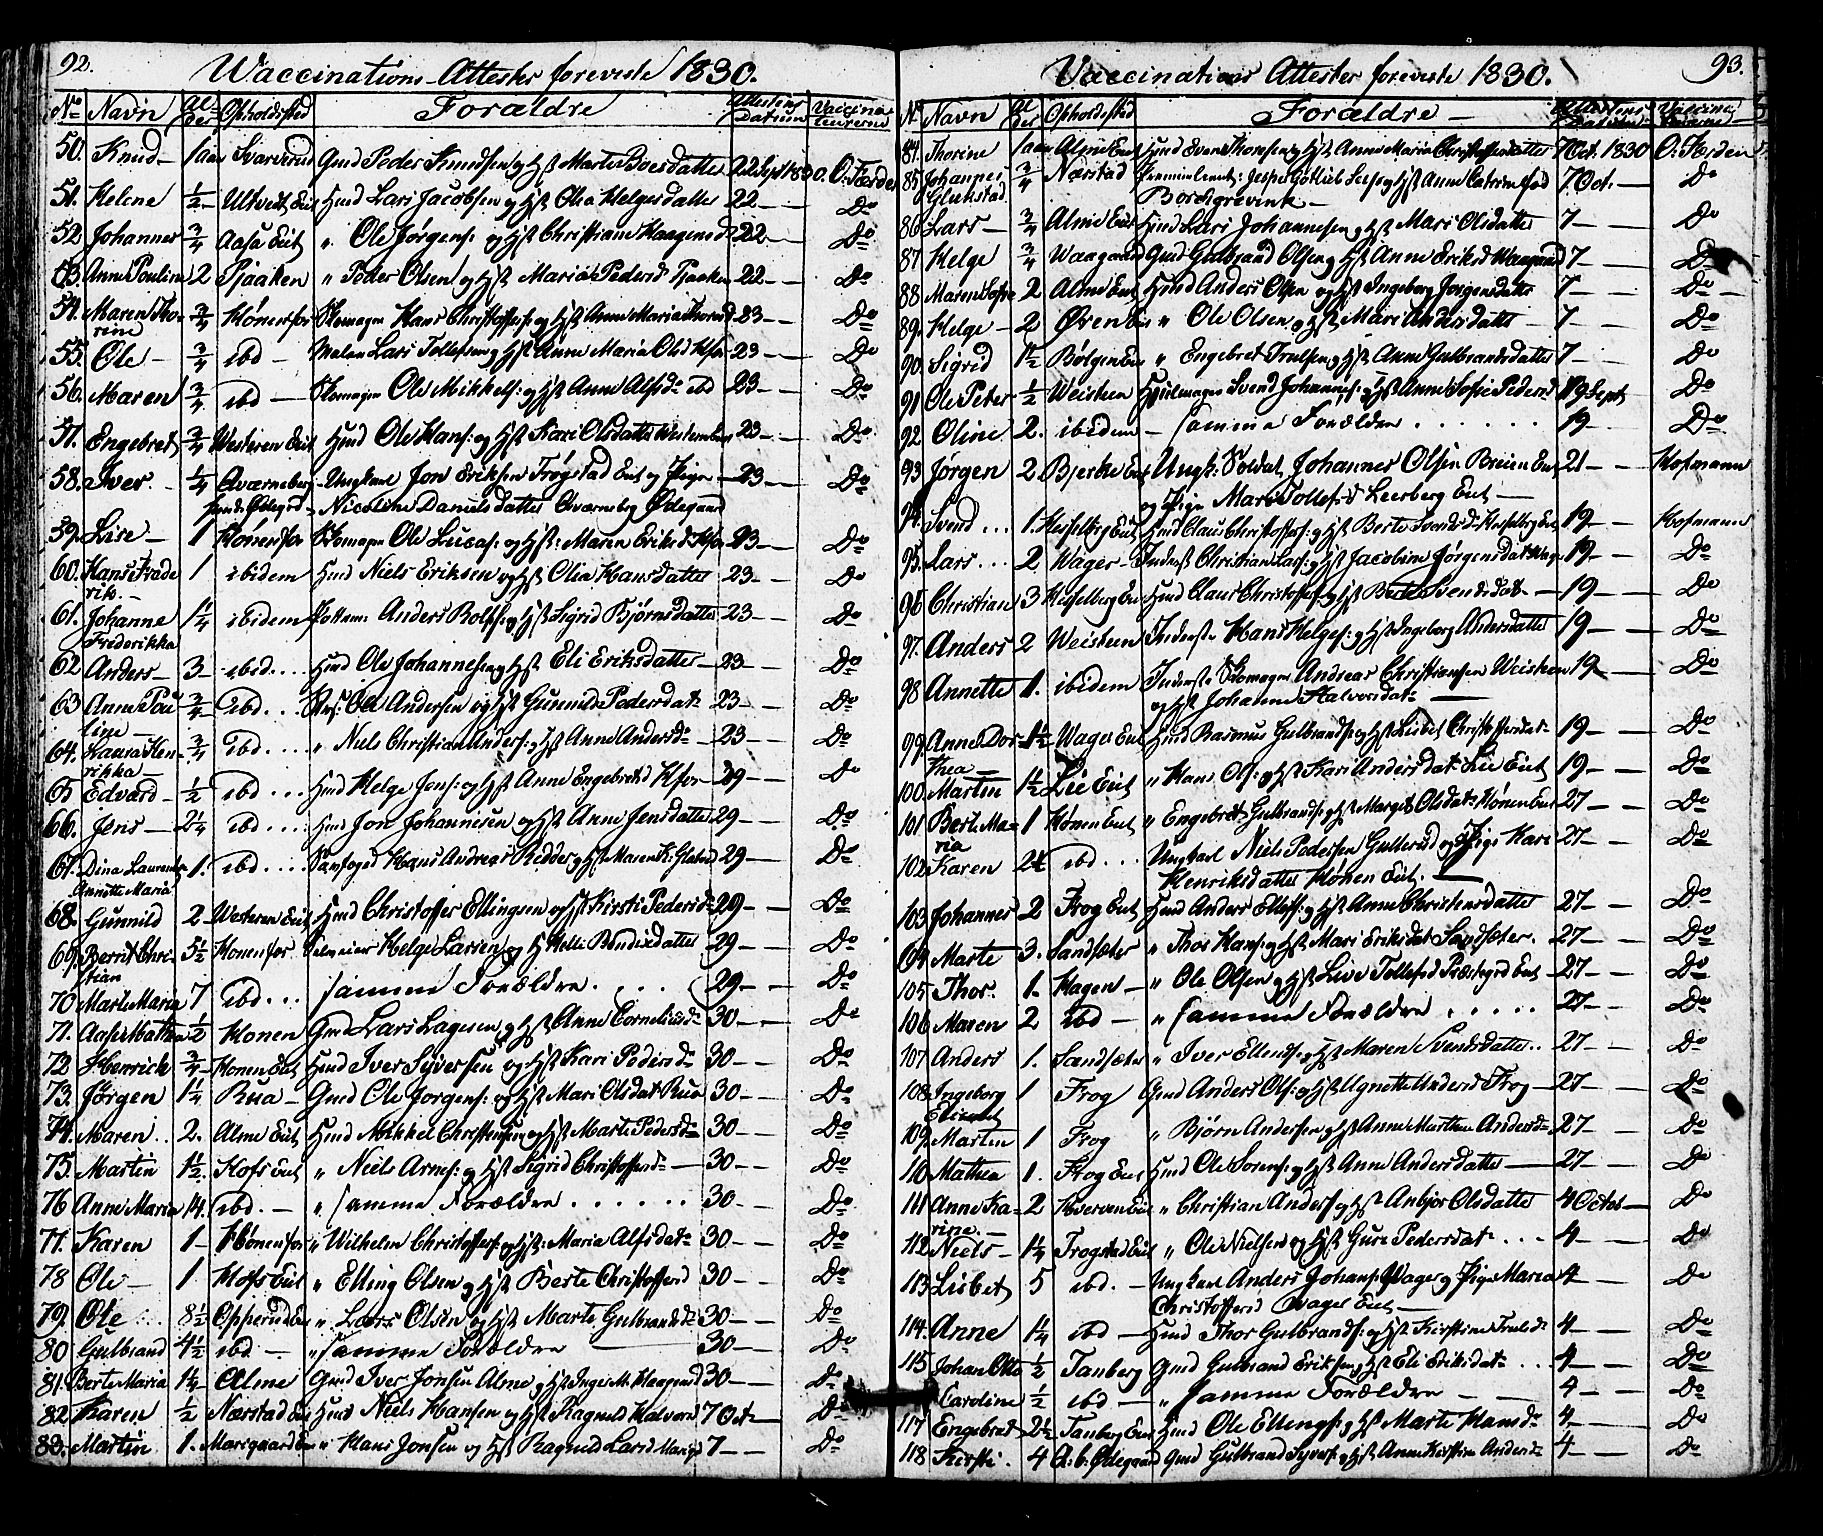 92.
Waccinations-Attester foreviste 1830.
No Navn Al-der Opholdssted Forældre Attestens Datum Vaccinateurerne
50. Knud 1 aar Svarverud Gmd Peder Knudsen og Hst Marte Boesdatter 22 Sept 1830. O: Færden
51. Helene 1/2 Ultvedt Eiet Hmd Lars Jacobsen og Hst Olia Helgesdatter 22 Do
52 Johannes 3/4 Aasa Eiet " Ole Jørgens: og Hst Christiane Haagensd 22 Do
53. Anne Pouline 2 Pjaaken " Peder Olsen og Hst Maria Pedersd Pjaaken 22 Do
54. Maren Tho- 3/4 Hønenfos Skomager Hans Christoffers: og Hst Anne Maria 23 Do
rine
55. Ole 3/4 ibd Maler Lars Tollefsen og Hst Anne Maria Olsd Hfos 23 Do
56. Maren 3/4 ibd Skomager Ole Mikkels: og Hst Anne Alfsdr ibd 23 Do
57. Engebret 3/4 Westeren Eiet Hmd Ole Hans: og Hst Kari Olsdatter Westeren 23 Do
58. Iver 1/4 Qværneberg Ungkarl Jon Eriksen Trøgstad Eiet og Pige 23 Do
Ødegrd Nicoline Danielsdatter Qværneberg Ødegaard
59. Lise 1 Hønenfos Skomager Ole Lucas: og Hst: Maren Eriksd Hfos 23 Do
60. Hans Frede 1 ibidem Hmd Niels Eriksen og Hst Olia Hansdatter 23 Do
rik.
61. Johanne 1 1/4 ibidem Anders Rolfs: og Hst Sigrid Bjørnsdatter 23 Do
Friderikka
62 Anders 3 ibd. Hmd Ole Johannes: og Hst Eli Eriksdatter 23 Do
63 Anne Pou 3/4 ibd. Ole Andersen og Hst Gunnild Pedersdat: 23 Do
line
64. Laura Hen- 3/4 ibd. " Niels Christian Anders: og Hst Anne Andersdr 23 Do
rikka
65 Edvard 1/2 ibd Hmd Helge Jens: og Hst Anne Engebretsd Hfos 29 Do
66. Jens 2 1/4 ibd Hmd Jon Johannesen og Hst Anne Jensdatter 29 Do
67. Dina Laurentse 1. ibd Hans Andreas Ridder og Hst Maren K: 29 Do
Annette Maria
68. Gunnild 2 Westeren Eiet Hmd Christoffer Ellingsen og Hst Kirsti Pedersdr 29 Do
69. Berrit Chri- 5 1/2 Honenfos Helge Larsen og H Helle Bendixdatter 29 Do
stian
70 Marte Maria 7 ibd samme Forældre 29 Do
71. Aase Mathea 1/2 Honen Gmd Lars Lagesen og Hst Anne Corneliusdr 30 Do
72 Henrick 3/4 Honen Eiet Hmd Iver Syversen og Hst Kari Pedersdr 30 Do
73. Jørgen 1 1/4 Rua Gmd Ole Jorgens: og Hst Mari Olsdat Rua 30 Do
74. Maren 2. Alme Eiet Hmd Mikkel Christensen og Hst Marte Pedersdr 30 Do
75. Martin 1 1/2 Hofs Eiet " Niels Arnes: og Hst Sigrid Christoffersdr 30 Do
76 Anne Maria 14. ibd. " samme Forældre 30 Do
77. Karen 1 Hønenfos " Wilhelm Christoffers: og Hst: Maria Alfsdatr 30 Do
78 Ole 1 Hofs Eiet " Elling Olsen og Hst Berte Christoffersd 30 Do
79. Ole 8 1/2 Opperud Eiet " Lars Olsen og Hst Marte Gulbrandsdr 30 Do
80 Gulbrand 4 1/2 ibd " samme Forældre 30 Do
81. Berte Maria 1 1/4 Alme Gmd Iver Jonsen Alme og Hst Inger M. Haagensd 30 Do
82 Karen 1/2 Nærstad Eiet Hmd Niels Hansen og Hst Ragnild Halvorsd 7 Octr Do
83. Martin 1. Morigaard Eiet " Hans Jonsen og Hst Ragnild Larsd 7 Do
93.
Vaccinations Attester foreviste 1830.
No Navn Al der Opholdssted Forældre Attestens Datum Vaccinateurerne
84. Thorine 1 aar Alme Eiet Hmd Svend Thomsen og Hst Anne Maria Christoffersdatter 7 Oct. 1830 O: Færden
85 Johannes 3/4 Nærstad Premierlieut: Jesper Gotlieb og Hst Anne Catrine 7 Oct. Do
Glukstad Bordgrevink
86 Lars 3/4 Alme Eiet Hmd Lars Johannesen og Hst Mari Olsdatter 7 Do
87 Helge 3/4 Waagaard Gmd Gulbrand Olsen og Hst Anne Eriksd Waagaard 7 Do
88 Maren Sofie 2 Alme Eiet Hmd Anders Olsen og Hst Ingeborg Jørgensdatter 7 Do
89. Helge 2 Øren Eiet " Ole Olsen og Hst Mari Andersdatter 7 Do
90. Sigrid 1 1/2 Bølgen Eiet " Engebret Truls: og Hst Anne Gulbrandsdatter 7 Do
91 Ole Peter 1/2 Weisteen Hjulmager Svend Johannes: og Hst Anne Sofie Pedersd 19 Sept Do
92 Oline 2. ibidem samme Forældre 19 Do
93 Jørgen 2 Bjerke Eiet Ungk: Soldat Johannes Olsen Breien Eiet 21 Hofmann
og Pige Mari Tollefsd Leerberg Eiet
94. Svend 1. Hesselberg Eiet Hmd Claus Christoffers: og Hst Berte Svendsdr Hesselberg Eiet 19 Hofmann
95. Lars 2 Wager Inderst Christian Lars: og Hst Jacobine Jørgensdat Wager 19 Do
96 Christian 3 Hesselberg Eiet Hmd Claus Christoffers: og Hst Berte Svendsdat 19 Do
97. Anders 2 Weisteen Inderste Hans Helges: og Hst Ingeborg Andersdatter 19 Do
98 Annette 1. ibidem Inderste Skomager Andreas Christiansen Weisteen 19 Do
og Hst Johanne Halvorsdatr
99. Anne Dor- 1 1/2 Wager Eiet Hmd Rasmus Gulbrands: og Hst Lisbet Christoffersdatr 19 Do
thea
100. Martin 1 1/2 Lie Eiet " Hans Ols: og Hst Kari Andersdat: Lie Eiet 19 Do
101 Berte Ma- 1 Hønen Eiet " Engebret Gulbrands: og Hst Margit Olsdatr Hønen Eiet 27 Do
ria
102 Karen 2 1/4 ibd Ungkarl Niels Pedersen Gullerud og Pige Kari 27 Do
Henriksdatter Honen Eiet.
103 Johannes 2 Frog Eiet Hmd Anders Ellefs: og Hst Anne Christensdatter 27 Do
104 Marte 3. Sandsæter " Thor Hans: og Hst Mari Eriksdat Sandsæter. 27 Do
105 Thor. 1. Hagen " Ole Olsen og Hst Live Tollefsd Præstegrd Eiet 27 Do
106 Maren 2 ibd " samme Forældre 27 Do
107 Anders 1. Sandsæter " Iver Ellends: og Hst Maren Svendsdatter 27 Do
108. Ingeborg 1 Frog Gmd Anders Ols: og Hst Agnette Andersd Frog 27 Do
109. Marten 1 Frog " Bjørn Andersen og Hst Anne Marthea Andersdr 27 Do
110 Mathea 1. Frog Eiet Hmd Ole Sorens: og Hst Anne Andersdatter 27 Do
111 Anne Ka- 2 Hverven Eiet " Christian Anders: og Hst Anbjør Olsdatter 4 Octob Do
rine
112 Niels 1 1/4 Trogstad Eiet " Ole Nielsen og Hst Guro Pedersdatr 4 Do
113 Lisbet 5 ibd. Ungkarl Anders Johans: Wager og Pige Maria 4 Do
Christoffersd Wager Eiet
114. Anne 1 1/4 ibd Hmd Thor Gulbrands: og Hst Kirstine Trulsdr 4 Do
115 Johan Otto 1/2 Tanberg Gmd Gulbrand Eriksen og Hst Eli Eriksdatr 4 Do
Caroline 1/2 ibd " samme Forældre 4 Do
117 Engebret 2 1/2 Tanberg Eiet Hmd Ole Ellings: og Hst Marte Hansdr 4 Do
118 Kirsti. 4 A: b: Ødegaard Gmd Gulbrand Syvers: og Hst Anne Kirstine Andersdr 4 Do